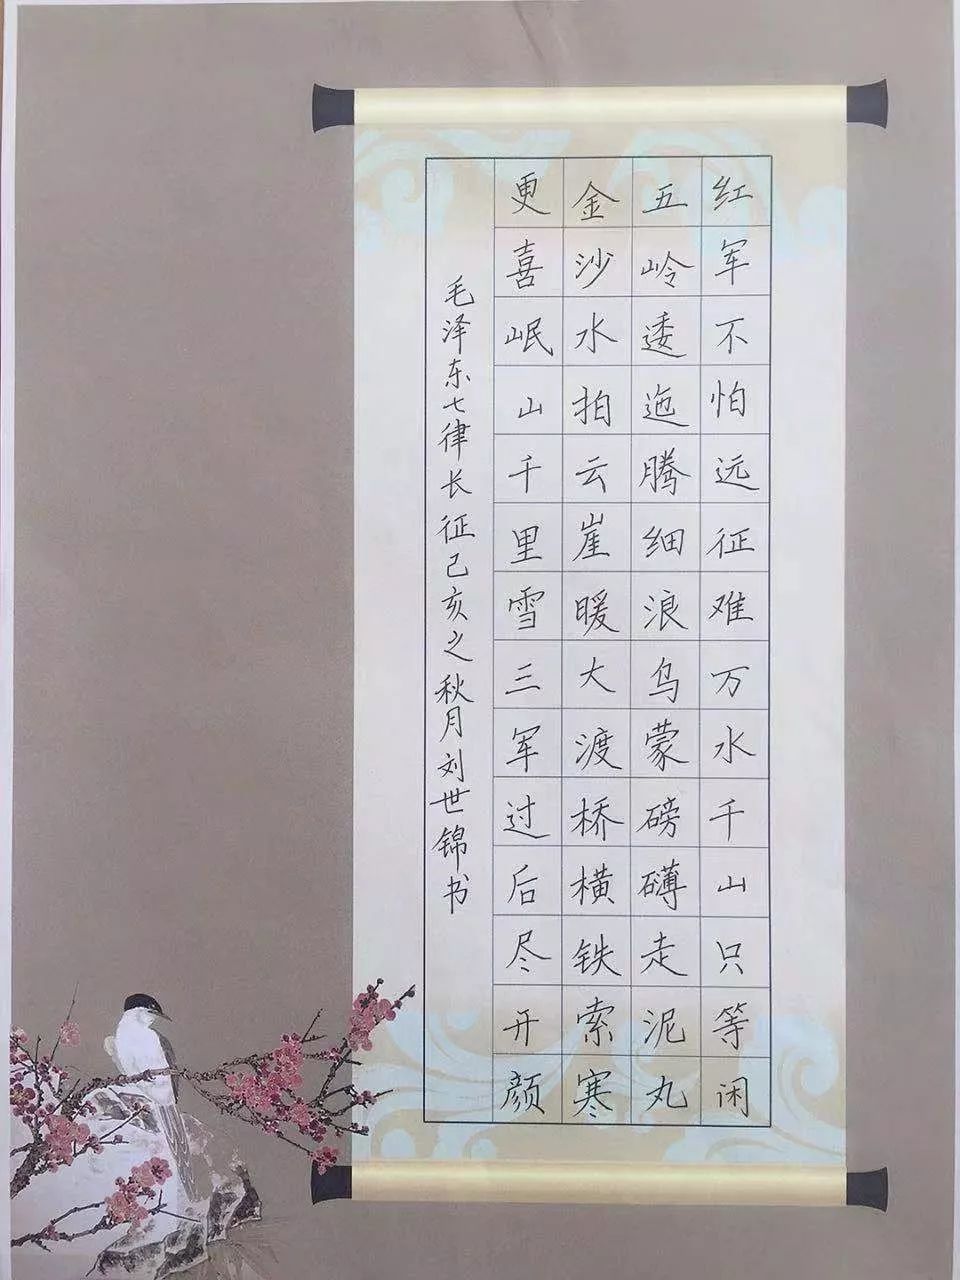 红军不怕远征难万水千山只等闲
五岭逶迤腾细浪乌蒙磅礴走泥丸
金沙水拍云崖暖大渡桥横铁索寒
更喜岷山千里雪三军过后尽开颜
毛泽东七律长征己亥之秋月刘世锦书